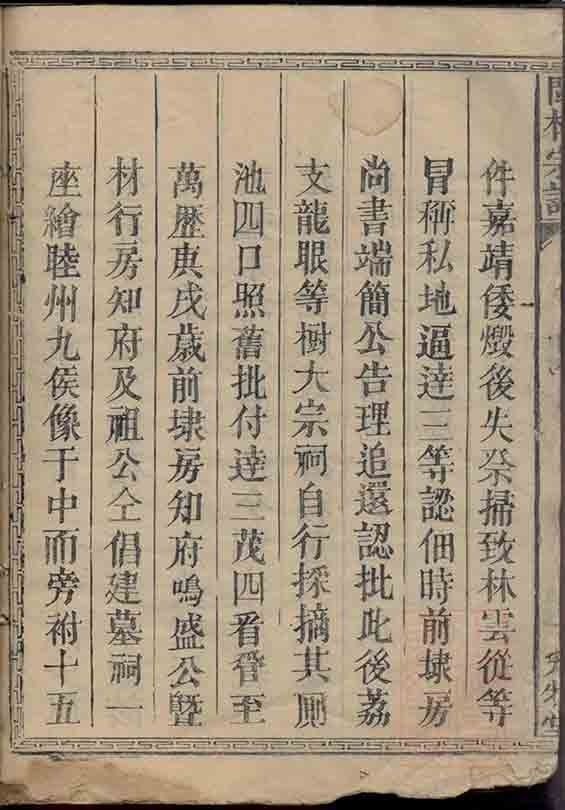 件嘉靖倭燬後失祭掃致林雲從等
冒稱私地逼達三等認佃時前埭房
尚書端簡公告理追還認批此後荔
支龍眼等樹大宗祠自行採摘其厠
池四口照舊批付達三茂四看管至
萬歷庚戌歲前埭房知府鳴盛公暨
材行房知府及祖公仝倡建墓祠一
座繪睦州九侯像于中而旁祔十五